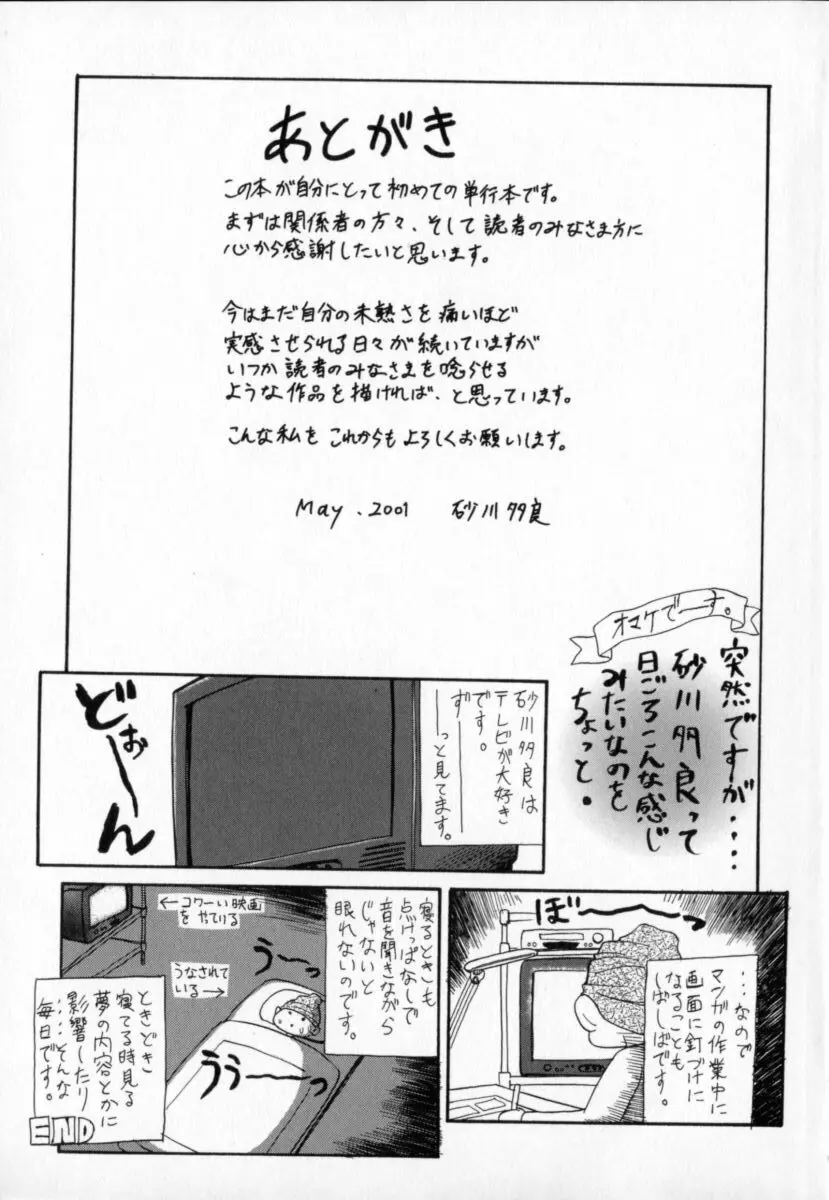 あとがき
この本が自分にとって初めての単行本です。
まずは関係者の方々、そして読者のみなさま方に
心から感謝したいと思います。
今はまだ自分の未熟さを痛いほど
実感させられる日々が続いていますが
いつか読者のみなさまを唸らせる
ような作品を描ければ、と思っています。
こんな私をこれからもよろしくお願いします。
May. 2001 砂川多良
オマケでーす。
突然ですが‥‥
砂川多良って
日ごろこんな感じ
みたいなのを
ちょっと。
砂川多良は
テレビが大好き
です。
ず───
───っと見てます。
どぉ〜ん
‥‥なので
マンガの作業中に
画面に釘づけに
なることも
しばしばです。
ぼ〜〜〜っ
寝るときも
点けっぱなしで
音を聞きながら
じゃないと
眠れないのです。
←コワーい映画
をやている
うなされて
いる→
う〜〜っ
うう〜〜っ
ときどき
寝てる時見る
夢の内容とかに
影響したり
‥‥そんな
毎日です。
END